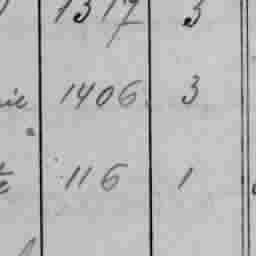 1317 3
1406 3
116 1